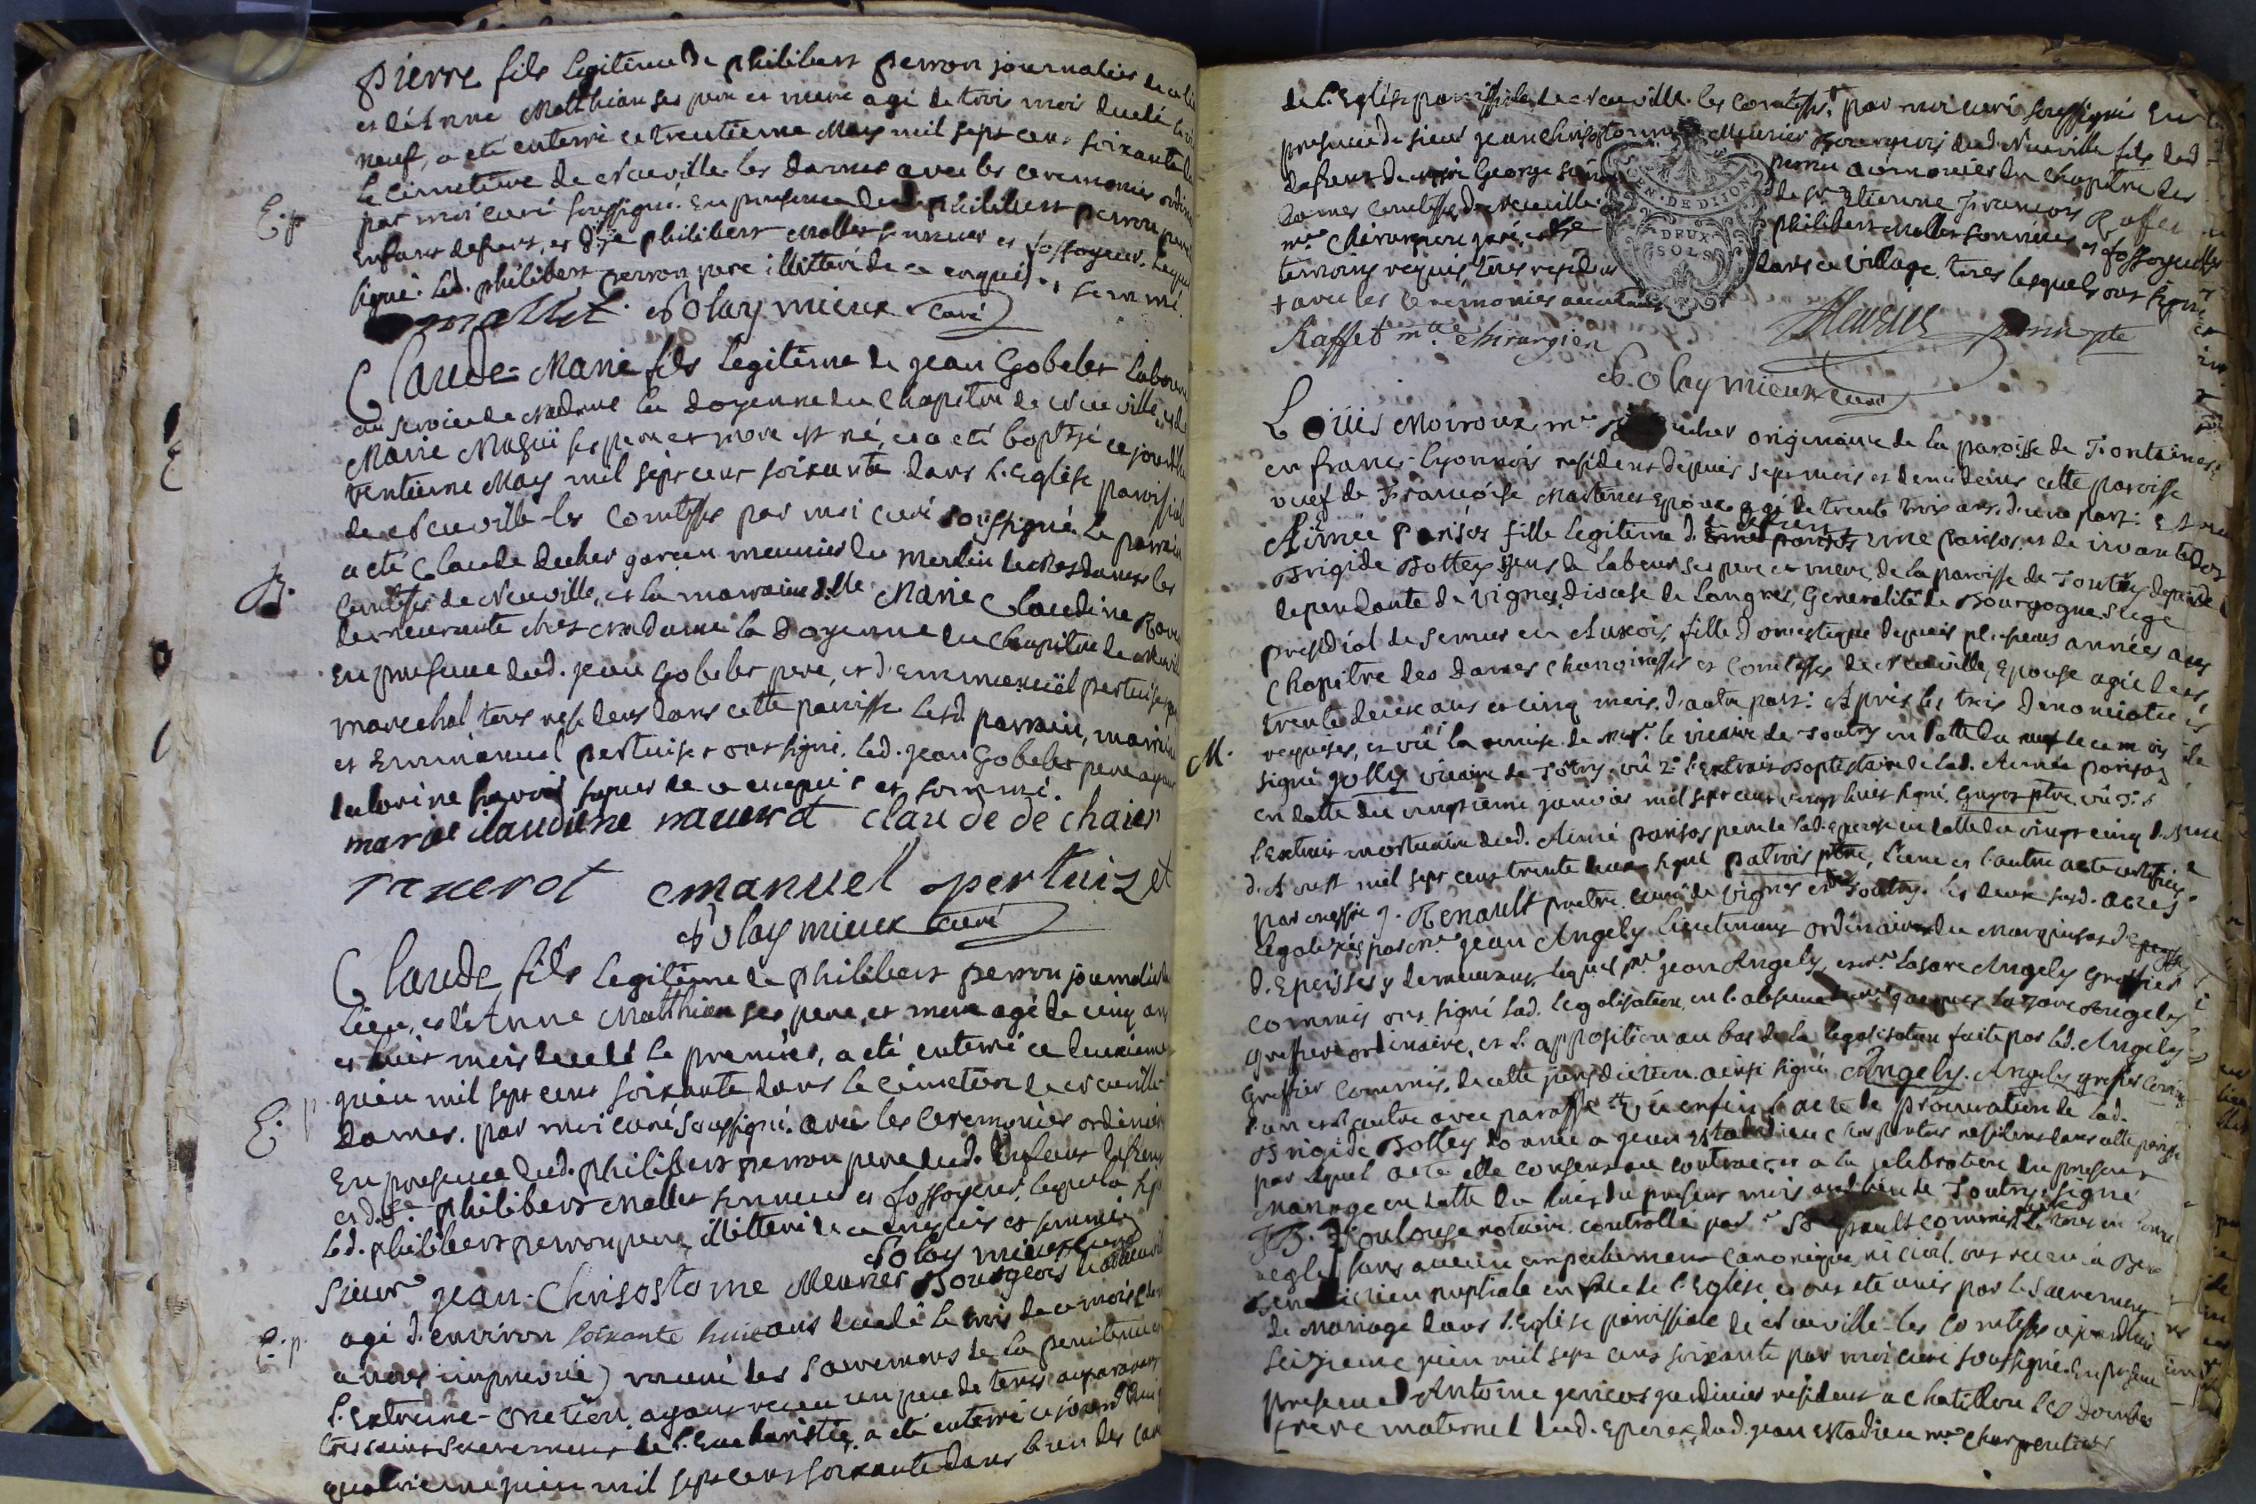 Pierre fils legitime de philibert perron journalier de ce lieu
et d'Anne Matthieu ses pere et mere agé de trois mois decedé
neuf, a eté enterré ce trentieme May mil sept cens soixante
le cimetiere de Neuville les dames avec les ceremonies ordin
par moi curé soussigné. En presence dud. philibert perron pere
E.p
enfant defunt, et d'Je philibert Mallet sonneur et fossoyeur. lequel
signé. led. philibert perron pere illitteré de ce enquis et sommé.
mallet Polaymieux Curé
Claude-Marie fils legitime de jean Gobelet laboureur
au service de Madame la Doyenne du Chapitre de Neuville, et de
Marie ses pere et mere est né, et a eté baptisé ce jourd'hui
trentieme May mil sept cens soixante dans l'Eglise paroissiale
de Neuville-les Comtesses par moi curé soussigné. Le parrain
a eté Claude garcon meunier du Merdin de Mesdames les
B.
Comtesses de Neuville, et la marraine dlle Marie Claudine
demeurante chés Madame la Doyenne du Chapitre de Neuvil
En presence dud. jean Gobelet pere, et d'Emmanuël pertuiset
marechal tous residens dans cette paroisse. lesd. parrain, marraine
et Emmanuel pertuiset ont signé. led. jean Gobelet pere ayant
declaré ne savoir signer de ce enquis et sommé.
marie claudine raverot claude de chaier
raverot emanuel pertuizet
Polaymieux curé
Claude fils legitime de philibert perron journalier
lieu, et d'Anne Matthieu ses pere, et mere agé de cinq ans
et huit mois decedé le premier, a eté enterré ce deuxieme
juin mil sept cens soixante dans le cimetiere de Neuville
E. p
dames. par moi curé soussigné. avec les ceremonies ordinaires
En presence dud. philibert perron pere dud. Enfant defunt
et d. Je philibert Mallet sonneur et fossoyeur, lequel a sig
led. philibert perron pere illitteré de ce enquis et sommé
Polaymieux curé
Sieur jean-Chrisostome Meunier Bourgeois
agé d'environ soixante huit ans decedé le trois de ce mois
E.p.
imprevue) muni des Sacremens de la penitence
l'Extreme-Onction, ayant receu un peu de tems auparavant
tres saint Sacrement de l'Eucharistie, a eté enterré ce jourd'hui
quatrieme juin mil sept cens soixante dans l'un des cav
de l'Eglise paroissiale de Neuville. les Comtesses. † par moi curé soussigné En
presence de sieur jean Chrisostome Meunier Bourgeois dud. Neuville fils dud
defunt de messire George perrin aumonier du chapitre des
dames Comtesses de Neuville. de Sr. Etienne François Raffet
me. Chirurgien juré, et de philibert Mallet sonneur et fossoyeur
temoins requis tous residens dans ce village. tous lesquels ont signé
† avec les ceremonies accoutumées
GEN. DE DIJON
DEUX
SOLS
Raffet mtre chirurgien Meunier perrin ptre
Polaymieux curé
Loüis Moiroux me originaire de la paroisse de Fontaines
en franc-lyonnois resident depuis sept mois et demi dans cette paroisse
veuf de Françoise Epoux agé de trente trois ans, d'une part: Et
Aimée Parisot fille legitime d. Aimé parisot et de vivante
Brigide Bottey gens de labeur ses pere et mere, de la paroisse de Toutry
dependante de vignes, Diocese de langres, Generalité de Bourgogne, Siege
presidial de semur en Auxois, fille domestique depuis plusieurs années aux
Chapitre des dames chanoinesses et Comtesses de Neuville, Epouse agée de
trente deux ans et cinq mois. d'autre part: Après les trois denonciations
M.
requises, et vû la remise de Mr. le vicaire de Toutry en datte du neuf de ce mois
signé Jolly vicaire de Toutry. vû 2° l'Extrait Baptistaire de lad. Aimée parisot
en datte du vingtieme janvier mil sept cens vingt huit signé Guyot ptre, vû 3°
l'Extrait mortuaire dud. Aimé parisot pere de lad. epouse en datte du vingt cinq
d'Aoust mil sept cens trente deux signé patrois ptre, l'une et l'autre acte certifiés
par messire J. Renault pretre curé de vignes et de Toutry. les deux susd. actes
legalisés par me jean Angely lieutenant ordinaire du Marquisat d'Epoisses
d'Epoisses y demeurant, lequel Sr. jean Angely, et me. Lasare Angely greffier
commis ont signé lad. legalisation, en l'absence Lasare Angely
greffier ordinaire, et l'apposition au bas de la legalisation faite par led. Angely
greffier commis. de cette jurisdiction. ainsi signé Angely. Angely greffier Commis
l'un et l'autre avec paraffe et vû enfin l'acte de procuration de lad.
Brigide Bottey donnée a jean Estadieu charpentier resident dans cette paroisse
par lequel acte elle consent au contract, et a la celebration du present
mariage en datte du huit du present mois au lieu de Toutry, signé
Toulouse notaire. controllé par Sr. commis
sans aucun empechement canonique, ni civil, ont receu la
benediction nuptiale en face de l'Eglise et ont eté unis par le Sacrement
de Mariage dans l'Eglise paroissiale de Neuville-les Comtesses ce jourd'hui
seizieme juin mil sept cens soixante par moi curé soussigné. En presence
presence d'Antoine jardinier resident a Chatillon les Dombes
frere maternel dud. Epoux, dud. jean Estadieu me Charpentier